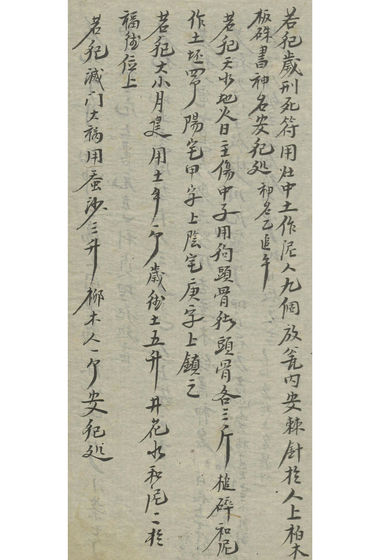 若犯歲刑死符用灶中土作泥人九個放瓮内安棘針於人上柏木
板硃書神名安犯処 神名乙追午
若犯天水地火日主傷中子用狗頭骨猪頭骨各三斤槌碎和泥
作土坯四个陽宅甲字上陰宅庚字上鎮之
若犯大小月建用土牛一个歲德土五升井花水和泥二於
福德位上
若犯滅门大禍用蚕沙三升柳木人一个安犯処